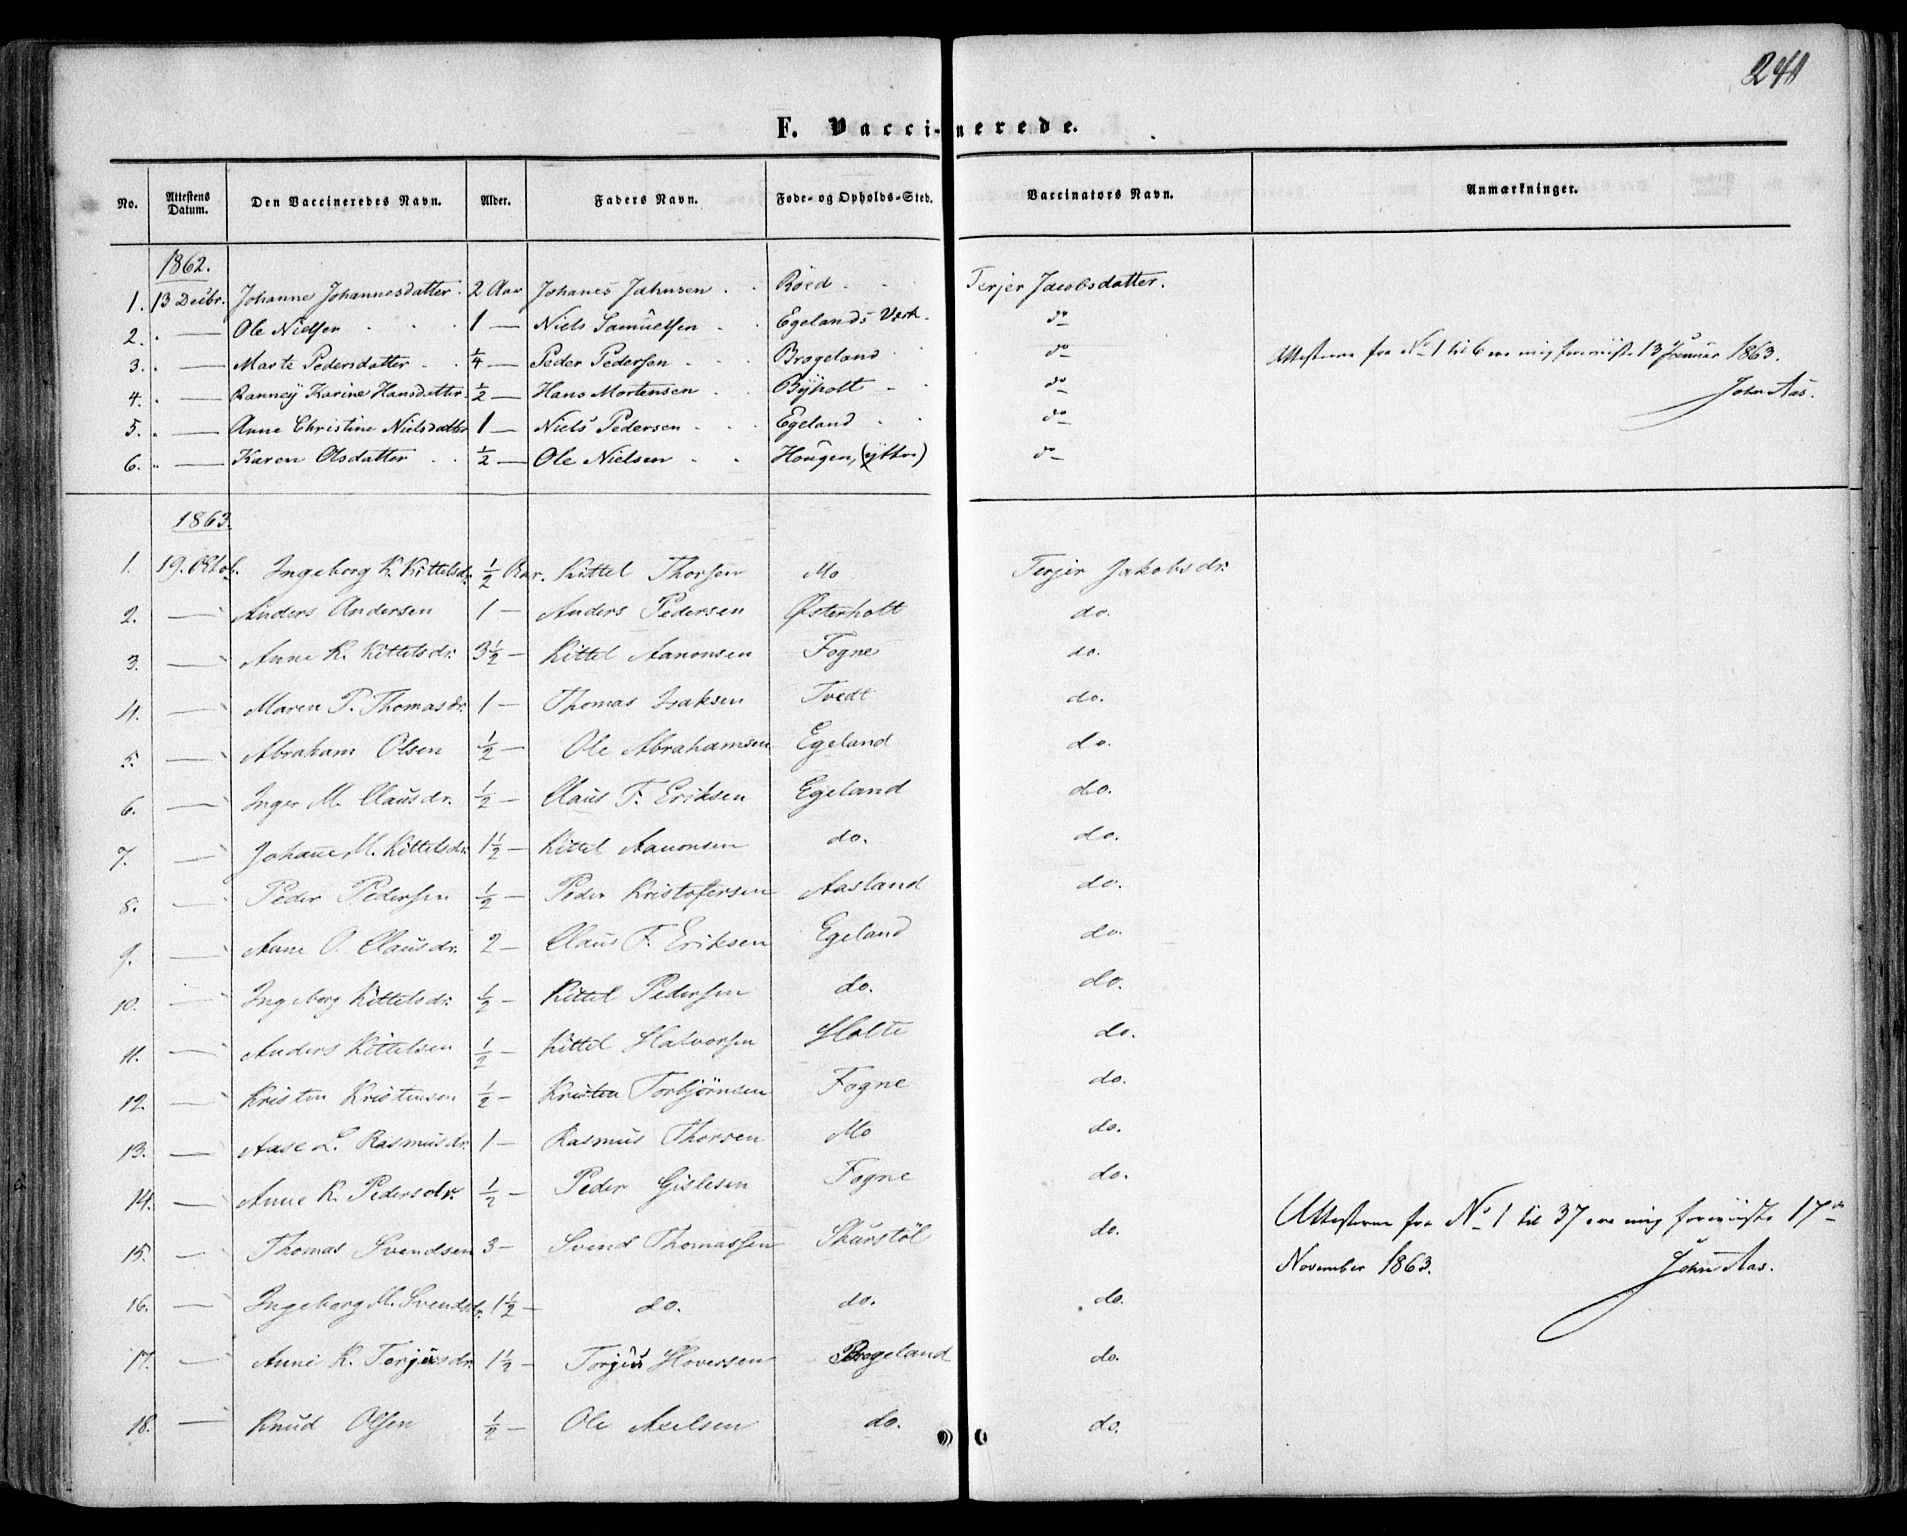 241
F. Vaccinerede.
No. Attestens Datum. Den Vaccineredes Navn. Alder. Faders Navn. Føde- og Opholds-Sted. Vaccinators Navn. Anmærkninger.
1862.
1. 13 Decbr. Johanne Johannesdatter. 2 Aar Johanes Jahnsen Roed Terjer Jacobsdatter.
2. " — Ole Nielsen 1 — Niels Samuelsen Egelands Værk. do
3. " — Marte Pedersdatter 1/4 — Peder Pedersen Brøgeland do
4. " — Ranney Karine Hansdatter. 1/2 — Hans Mortensen Byholt do
5. " — Anne Christine Nielsdatter 1 — Niels Pedersen Egeland do
6. " — Karen Olsdatter 1/2 — Ole Nielsen Hougen, (yttre) do
Attesterne fra No 1 til 6 ere mig foreviiste 13 Januar 1863.
John Aas.
1863.
1. 19. Oktob. Ingeborg K. Kittelsdr. 1/2 Aar. Kittel Thorsen Mo Terjer Jakobsdr.
2. — Anders Andersen 1 — Anders Pedersen Østerholt do.
3. — Anne K. Kittelsdr. 3 1/2 — Kittel Aanonsen Fogne do.
4. — Maren T. Thomasdr. 1 — Thomas Isaksen Tvedt do.
5. — Abraham Olsen 1/2 — Ole Abrahamsen Egeland do.
6. — Inger M. Clausdr. 1/2 — Claus F. Eriksen Egeland do.
7. — Johane M. Kittelsdr. 1 1/2 — Kittel Aanonsen do. do.
8. — Peder Pedersen 1/2 — Peder Kristofersen Aasland do.
9. — Anne O. Clausdr. 2 — Claus F. Eriksen Egeland do.
10. — Ingeborg Kittelsdr. 1/2 — Kittel Pedersen do. do.
11. — Anders Kittelsen 1/2 — Kittel Halvorsen Holte do.
12. — Kristen Kristensen 1/2 — Kristen Torbjørnsen Fogne do.
13. — Aase L. Rasmusdr. 1 — Rasmus Thorsen Mo do.
14. — Anne K. Pedersdr. 1/2 — Peder Gislesen Fogne do.
15. — Thomas Svendsen 3 — Svend Thomassen Skurstøl do.
Attesterne fra No 1 til 37 ere mig foreviiste 17de
November 1863. John Aas.
16. — Ingeborg M. Svendsdr. 1 1/2 — do. do. do.
17. — Anne K. Torjusdr. 1 1/2 — Torjus Hovorsen Brøgeland do.
18. — Knud Olsen 1/2 — Ole Axelsen do. do.